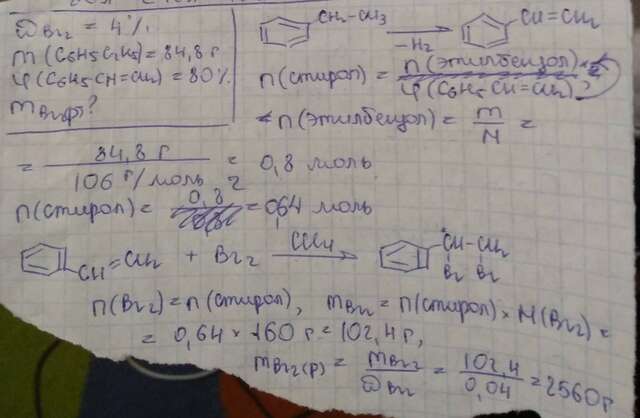 ω Br₂ = 4%
m (C6H5C2H5) = 84,8 г
φ (C6H5CH=CH2) = 80%
m Br₂(р)?
CH2-CH3
-H2
CH=CH2
n(стирол) = n(этилбензол) / φ(C6H5CH=CH2) ?
n(этилбензол) = m/M =
= 84,8 г / 106 г/моль = 0,8 моль
n(стирол) = 0,8 = 0,64 моль
CH=CH2 + Br2 CCl4 CH-CH2
Br Br
n(Br2) = n(стирол), mBr2 = n(стирол) × M(Br2) =
= 0,64 × 160 г = 102,4 г,
mBr2(р) = mBr2 / ωBr2 = 102,4 / 0,04 = 2560 г